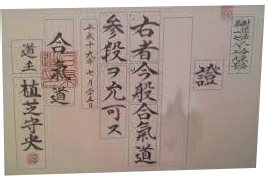 證
右者今般合氣道
参段ヲ允可ス
平成十九年七月廿五日
合氣道
道主 植芝守央